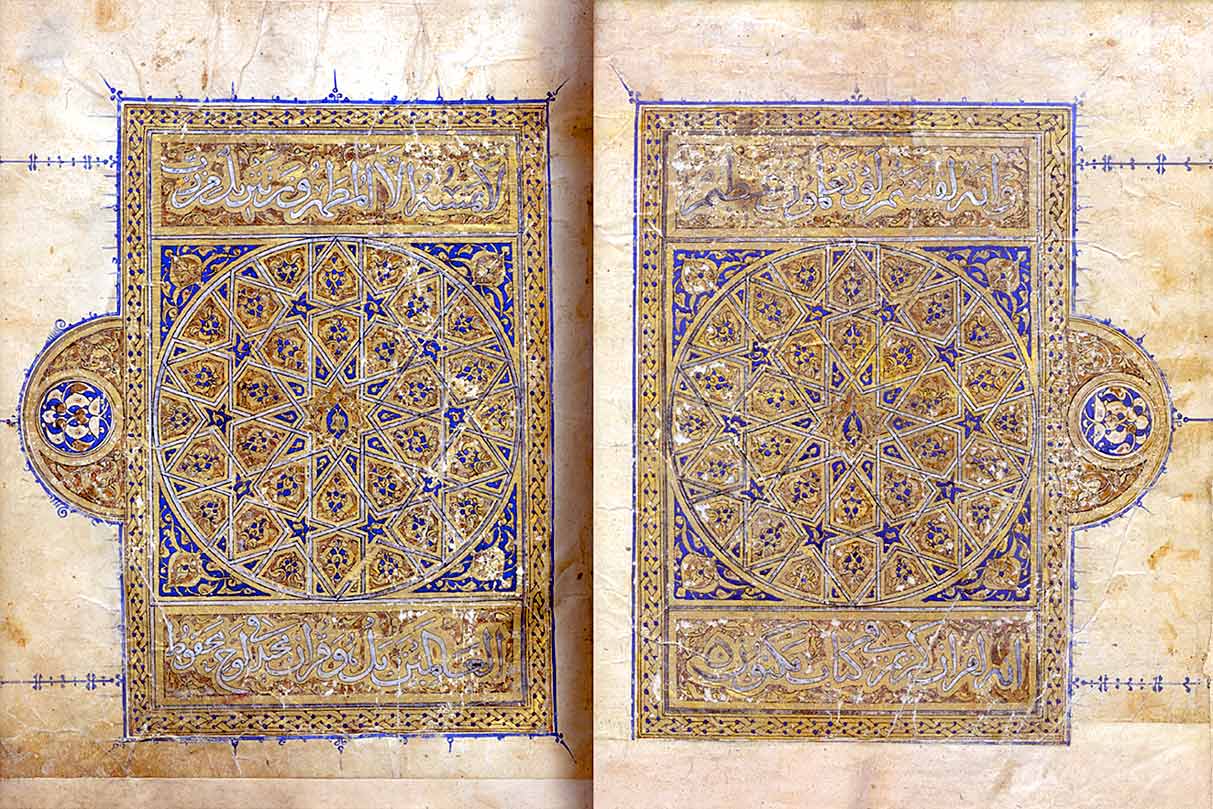 وانه لقسم لو تعلمون عظيم
انه لقران كريم في كتاب مكنون
لا يمسه الا المطهرون تنزيل من رب
العالمين بل هو قران مجيد في لوح محفوظ